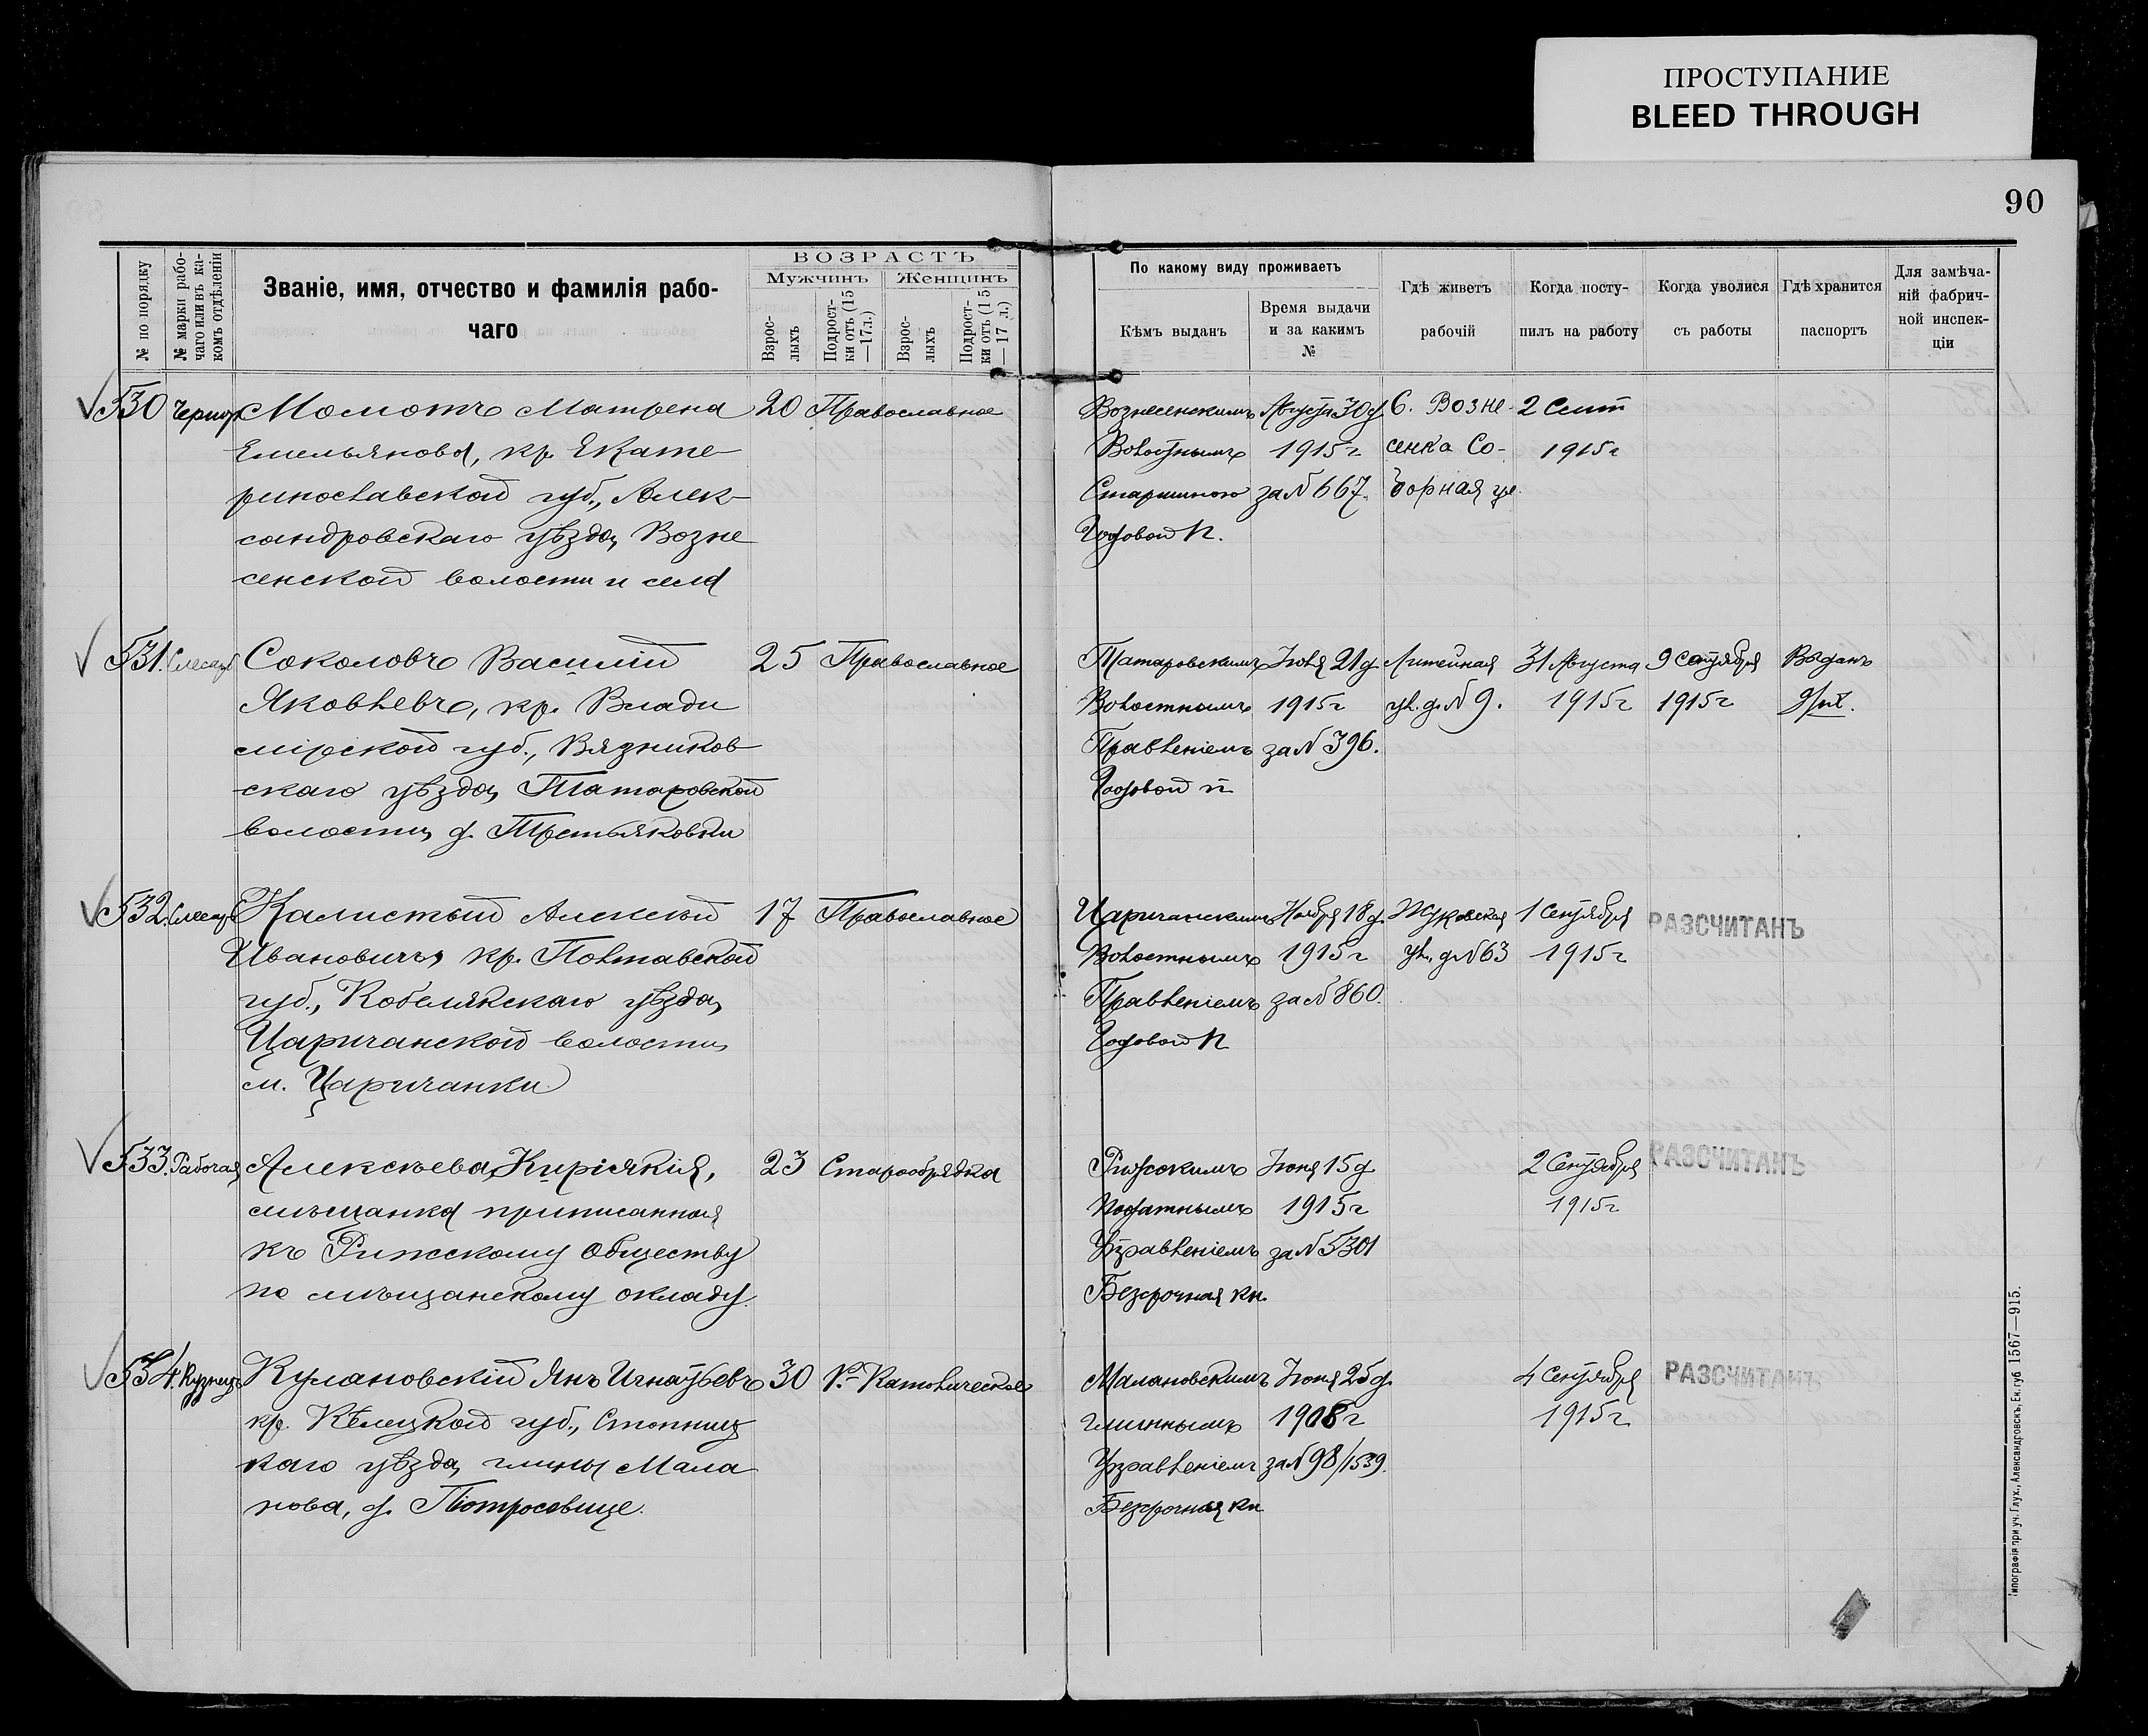 ПРОСТУПАНИЕ
BLEED THROUGH
90
№ по порядку
№ марки рабо-
чаго или въ ка-
комъ отдѣленіи
Званіе, имя, отчество и фамилія рабо-
чаго
ВОЗРАСТЪ
Мужчинъ
Женщинъ
Взрос-
лыхъ
Подрост-
ки отъ (15
—17 л.)
Взрос-
лыхъ
Подрост-
ки отъ (15
—17 л.)
По какому виду проживаетъ
Кѣмъ выданъ
Время выдачи
и за какимъ
№
Гдѣ живетъ
рабочій
Когда посту-
пилъ на работу
Когда уволися
съ работы
Гдѣ хранится
паспортъ
Для замѣча-
ній фабрич-
ной инспек-
ціи
530 Момотъ Матрена 20 Православное Вознесенскимъ Августа 30 д. С. Возне- 2 Сент
Емельянова, кр. Екате- Волостнымъ 1915 г сенка Со- 1915 г
ринославской губ., Алек- Старшиною за № 667. борная ул.
сандровскаго уѣзда, Возне Годовой п.
сенской волости и села
531. Слесарь Соколовъ Василій 25 Православное Татаровскимъ Іюля 21 д. Литейная 31 Августа 9 Сентября Выданъ
Яковлевъ, кр. Влади Волостнымъ 1915 г ул. д. № 9. 1915 г 1915 г 9/IX.
мірской губ., Вязников Правленіемъ за № 396.
скаго уѣзда, Татаровской Годовой п
волости, д. Третьяковки
532. Слесарь Калистый Алексѣй 17 Православное Царичанскимъ Ноября 18 д. Жуковская 1 Сентября РАЗСЧИТАНЪ
Ивановичъ, кр. Полтавской Волостнымъ 1915 г ул. д. № 63 1915 г
губ., Кобелякскаго уѣзда, Правленіемъ за № 860.
Царичанской волости, Годовой п
м. Царичанки
533. Рабочая Алексѣева Киріакія, 23 Старообрядка Рижскимъ Іюня 15 д. 2 Сентября РАЗСЧИТАНЪ
мѣщанка приписанная Податнымъ 1915 г 1915 г
къ Рижскому обществу Управленіемъ за № 5301
по мѣщанскому окладу. Безсрочная кн.
534. Кузнецъ Кулановскій Янъ Игнатьевъ 30 Р. Католическое Малановскимъ Іюня 25 д. 4 Сентября РАЗСЧИТАНЪ
кр. Кѣлецкой губ., Стопниц гминнымъ 1908 г 1915 г
каго уѣзда, гмины Мала Управленіемъ за № 98/1539.
нова, д. Безсрочная кн
Типографія при уч. Глух., Александровскъ, Ек. губ. 1567—915.